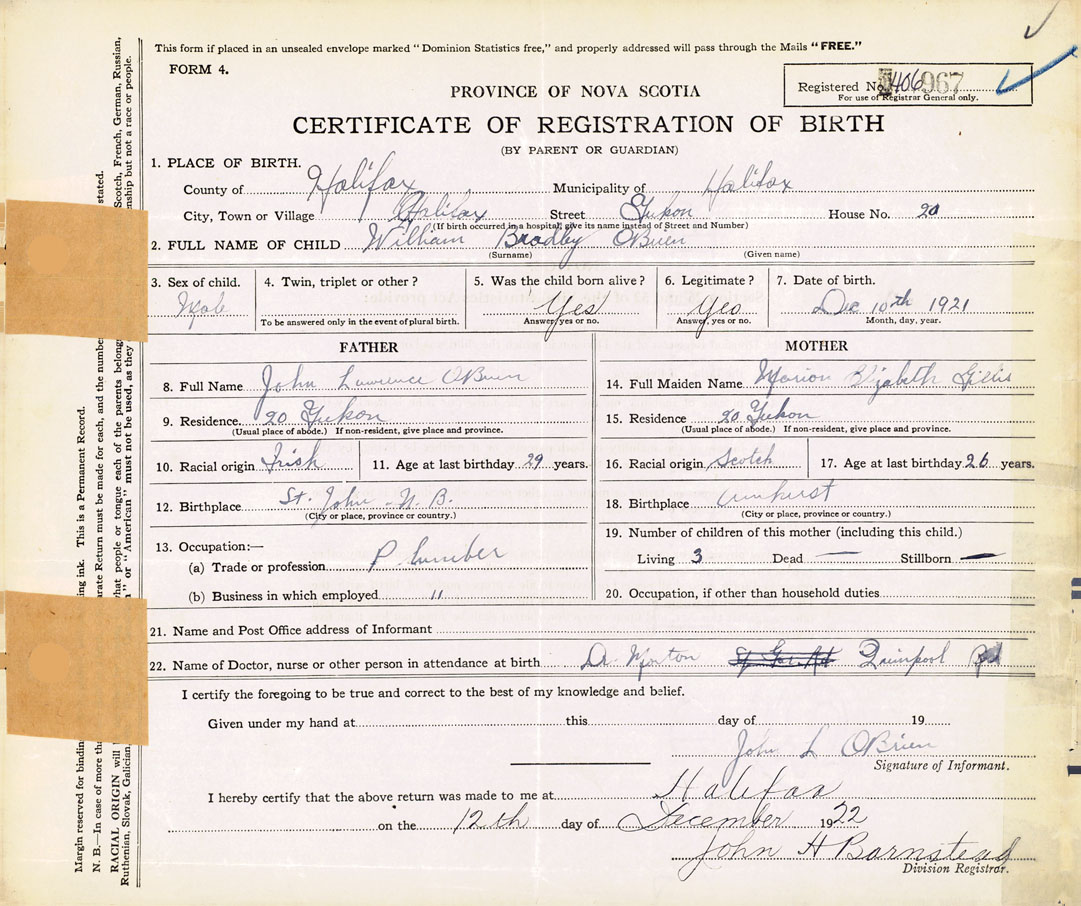 This form if placed in an unsealed envelope marked "Dominion Statistics free," and properly addressed will pass through the Mails "FREE."
FORM 4.
Registered No. 406967
For use of Registrar General only.
PROVINCE OF NOVA SCOTIA
CERTIFICATE OF REGISTRATION OF BIRTH
(BY PARENT OR GUARDIAN)
1. PLACE OF BIRTH.
County of Halifax Municipality of Halifax
City, Town or Village Halifax Street Yukon House No. 20
(If birth occurred in a hospital, give its name instead of Street and Number)
2. FULL NAME OF CHILD William Bradley OBrien
(Surname) (Given name)
3. Sex of child. 4. Twin, triplet or other? 5. Was the child born alive? 6. Legitimate? 7. Date of birth.
Male Yes Yes Dec 10th 1921
To be answered only in the event of plural birth. Answer, yes or no. Answer, yes or no. Month, day, year.
FATHER
8. Full Name John Lawrence OBrien
9. Residence 20 Yukon
(Usual place of abode.) If non-resident, give place and province.
10. Racial origin Irish 11. Age at last birthday 29 years.
12. Birthplace St. John - N. B.
(City or place, province or country.)
13. Occupation:—
(a) Trade or profession Plumber
(b) Business in which employed "
MOTHER
14. Full Maiden Name Marion Elizabeth Gillis
15. Residence 20 Yukon
(Usual place of abode.) If non-resident, give place and province.
16. Racial origin Scotch 17. Age at last birthday 26 years.
18. Birthplace Amhurst
(City or place, province or country.)
19. Number of children of this mother (including this child.)
Living 3 Dead — Stillborn —
20. Occupation, if other than household duties
21. Name and Post Office address of Informant
22. Name of Doctor, nurse or other person in attendance at birth Dr. Morton Quinpool Rd
I certify the foregoing to be true and correct to the best of my knowledge and belief.
Given under my hand at this day of 19
John L OBrien
Signature of Informant.
I hereby certify that the above return was made to me at Halifax
on the 12th day of December 1922
John H Barnstead
Division Registrar.
Margin reserved for binding
ing ink. This is a Permanent Record.
N. B.—In case of more tha
arate Return must be made for each, and the numbe
stated.
RACIAL ORIGIN will
hat people or tongue each of the parents belong
Scotch, French, German, Russian,
Ruthenian, Slovak, Galician,
n" or "American" must not be used, as they
nship but not a race or people.